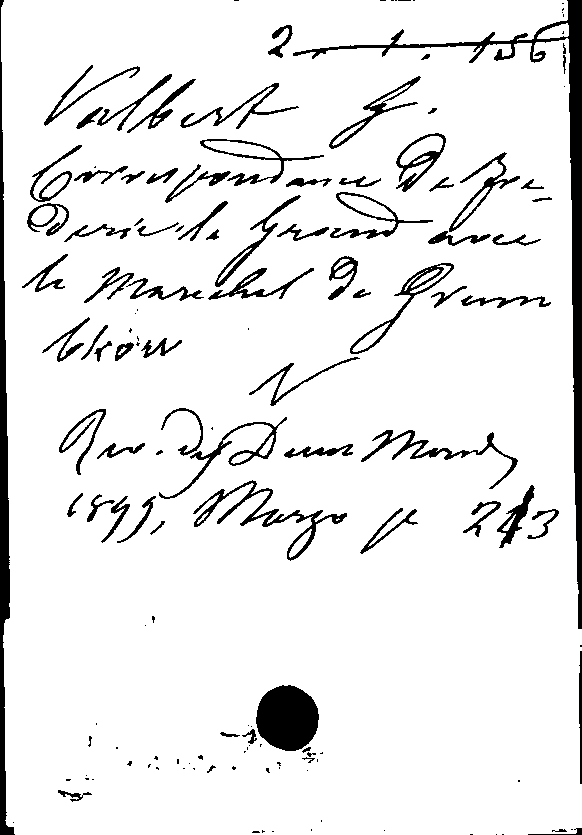 2. 1. 156
Valbert G.
Correspondance de Fre-
deric le Grand avec
le Marechal de Grum
bkow
Rev. des Deux Mondes
1899, Marzo p 213